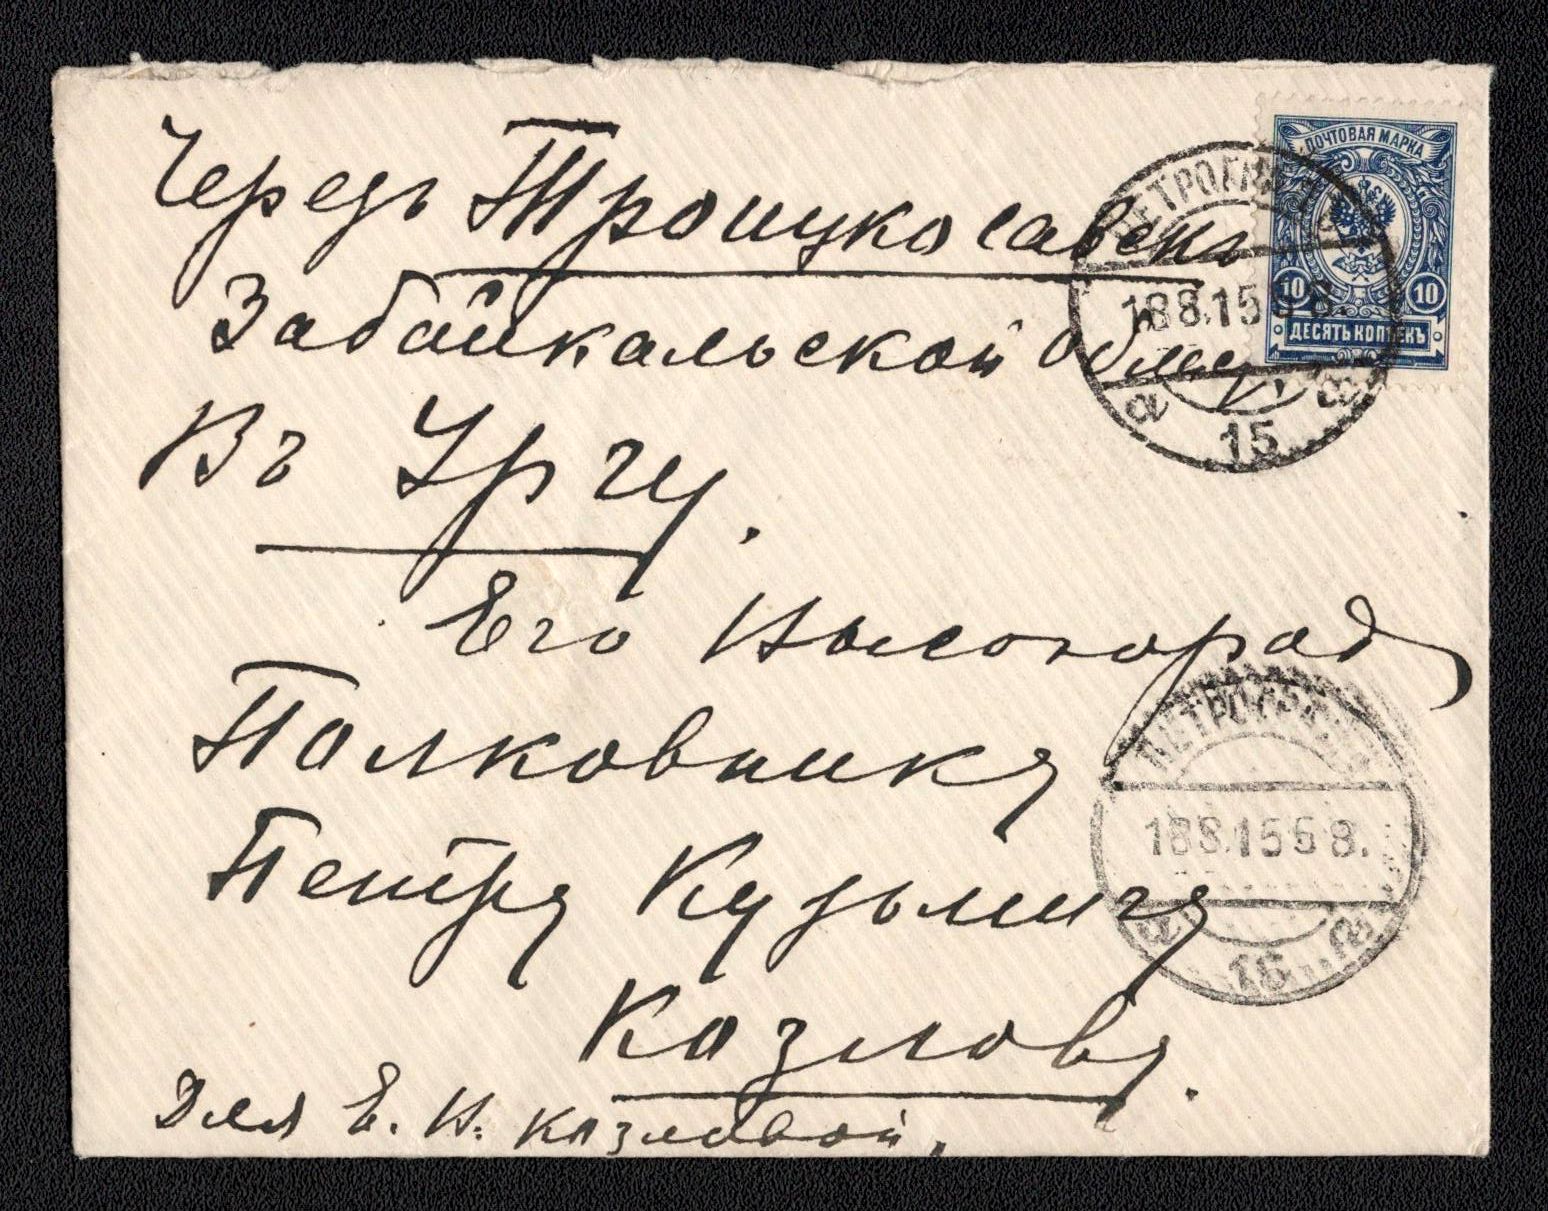 Черезъ Троицкосавскъ
Забайкальской Обл.
Въ Ургу.
Его Высокород
Полковнику
Петру Кузьмичу
Козлову.
Для Е. И. Козловой.
ПОЧТОВАЯ МАРКА
10 10
ДЕСЯТЬ КОПѢЕКЪ
ПЕТРОГРАДЪ
18.8.15 5 8.
15
ПЕТРОГРАДЪ
18 8.15 5 8.
15